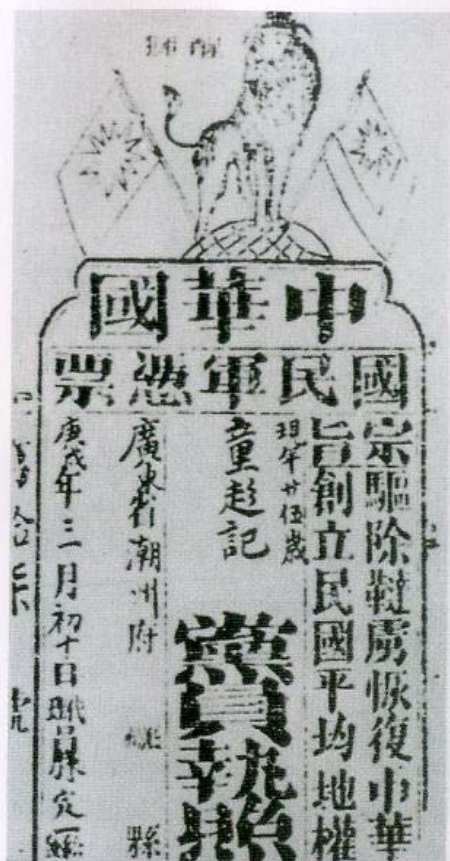 醒獅
中華國
國民軍憑票
宗驅除韃虜恢復中華
旨創立民國平均地權
現年廿伍歲
童趁記
黨員執照
廣東省潮州府 縣
庚戌年三月初十日職員